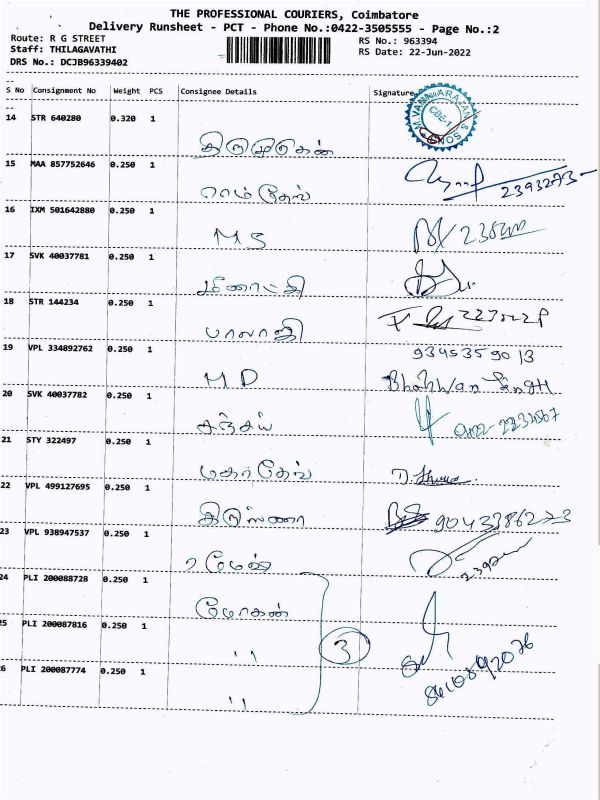 THE PROFESSIONAL COURIERS, Coimbatore
Delivery Runsheet - PCT - Phone No.:0422-3505555 - Page No.:2
Route: R G STREET
RS No.: 963394
Staff: THILAGAVATHI
RS Date: 22-Jun-2022
DRS No.: DCJB96339402
S No Consignment No Weight PCS Consignee Details Signature
14 STR 640280 0.320 1 திருமுருகன்
15 MAA 857752646 0.250 1 ராம்தேவ் 2393273
16 IXM 501642880 0.250 1 M S
17 SVK 40037781 0.250 1 மீனாட்சி
18 STR 144234 0.250 1 பாலாஜி
19 VPL 334892762 0.250 1 M D 9345359013
20 SVK 40037782 0.250 1 சஞ்சய்
21 STY 322497 0.250 1 மகாதேவ்
22 VPL 499127695 0.250 1 கிருஸ்ணா 9043386273
23 VPL 938947537 0.250 1 ரமேஷ்
24 PLI 200088728 0.250 1 மோகன்
25 PLI 200087816 0.250 1 " 3
26 PLI 200087774 0.250 1 "